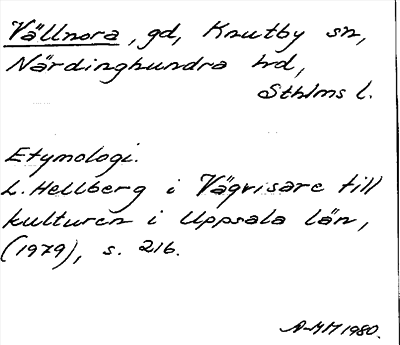 Vällnora, gd, Knutby sn,
Närdinghundra hd,
Sthlms l.
Etymologi.
L. Hellberg i Vägvisare till
kulturen i Uppsala län,
(1979), s. 216.
A-MM 1980.